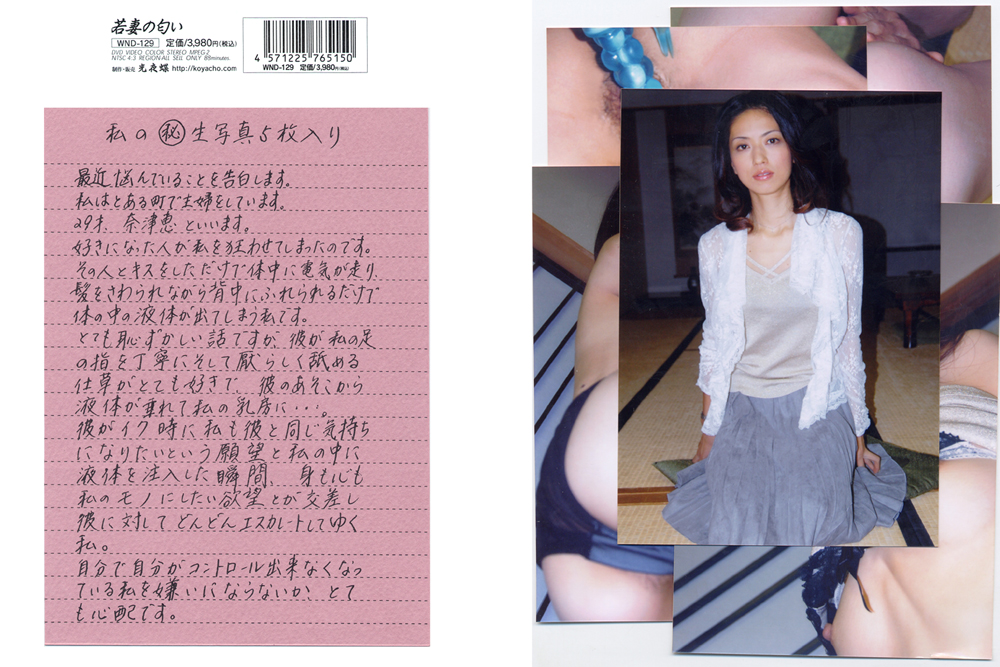 若妻の匂い
WND-129 定価/3,980円(税込)
DVD VIDEO COLOR STEREO MPEG2
NTSC 4:3 REGION-ALL SELL ONLY 89minutes
制作・販売 光夜蝶 http://koyacho.com
4 571225 765150
WND-129 定価/3,980円(税込)
私の㊙生写真5枚入り
最近悩んでいることを告白します。
私はとある町で主婦をしています。
29才、奈津恵といいます。
好きになった人が私を狂わせてしまったのです。
その人とキスをしただけで体中に電気が走り、
髪をさわられながら背中にふれられるだけで
体の中の液体が出てしまう私です。
とても恥ずかしい話ですが、彼が私の足
の指を丁寧にそして厭らしく舐める
仕草がとても好きで、彼のあそこから
液体が垂れて私の乳房に・・・。
彼がイク時に私も彼と同じ気持ち
になりたいという願望と私の中に
液体を注入した瞬間、身も心も
私のモノにしたい欲望とが交差し
彼に対してどんどんエスカレートしてゆく
私。
自分で自分がコントロール出来なくなっ
ている私を嫌いにならないか、とて
も心配です。